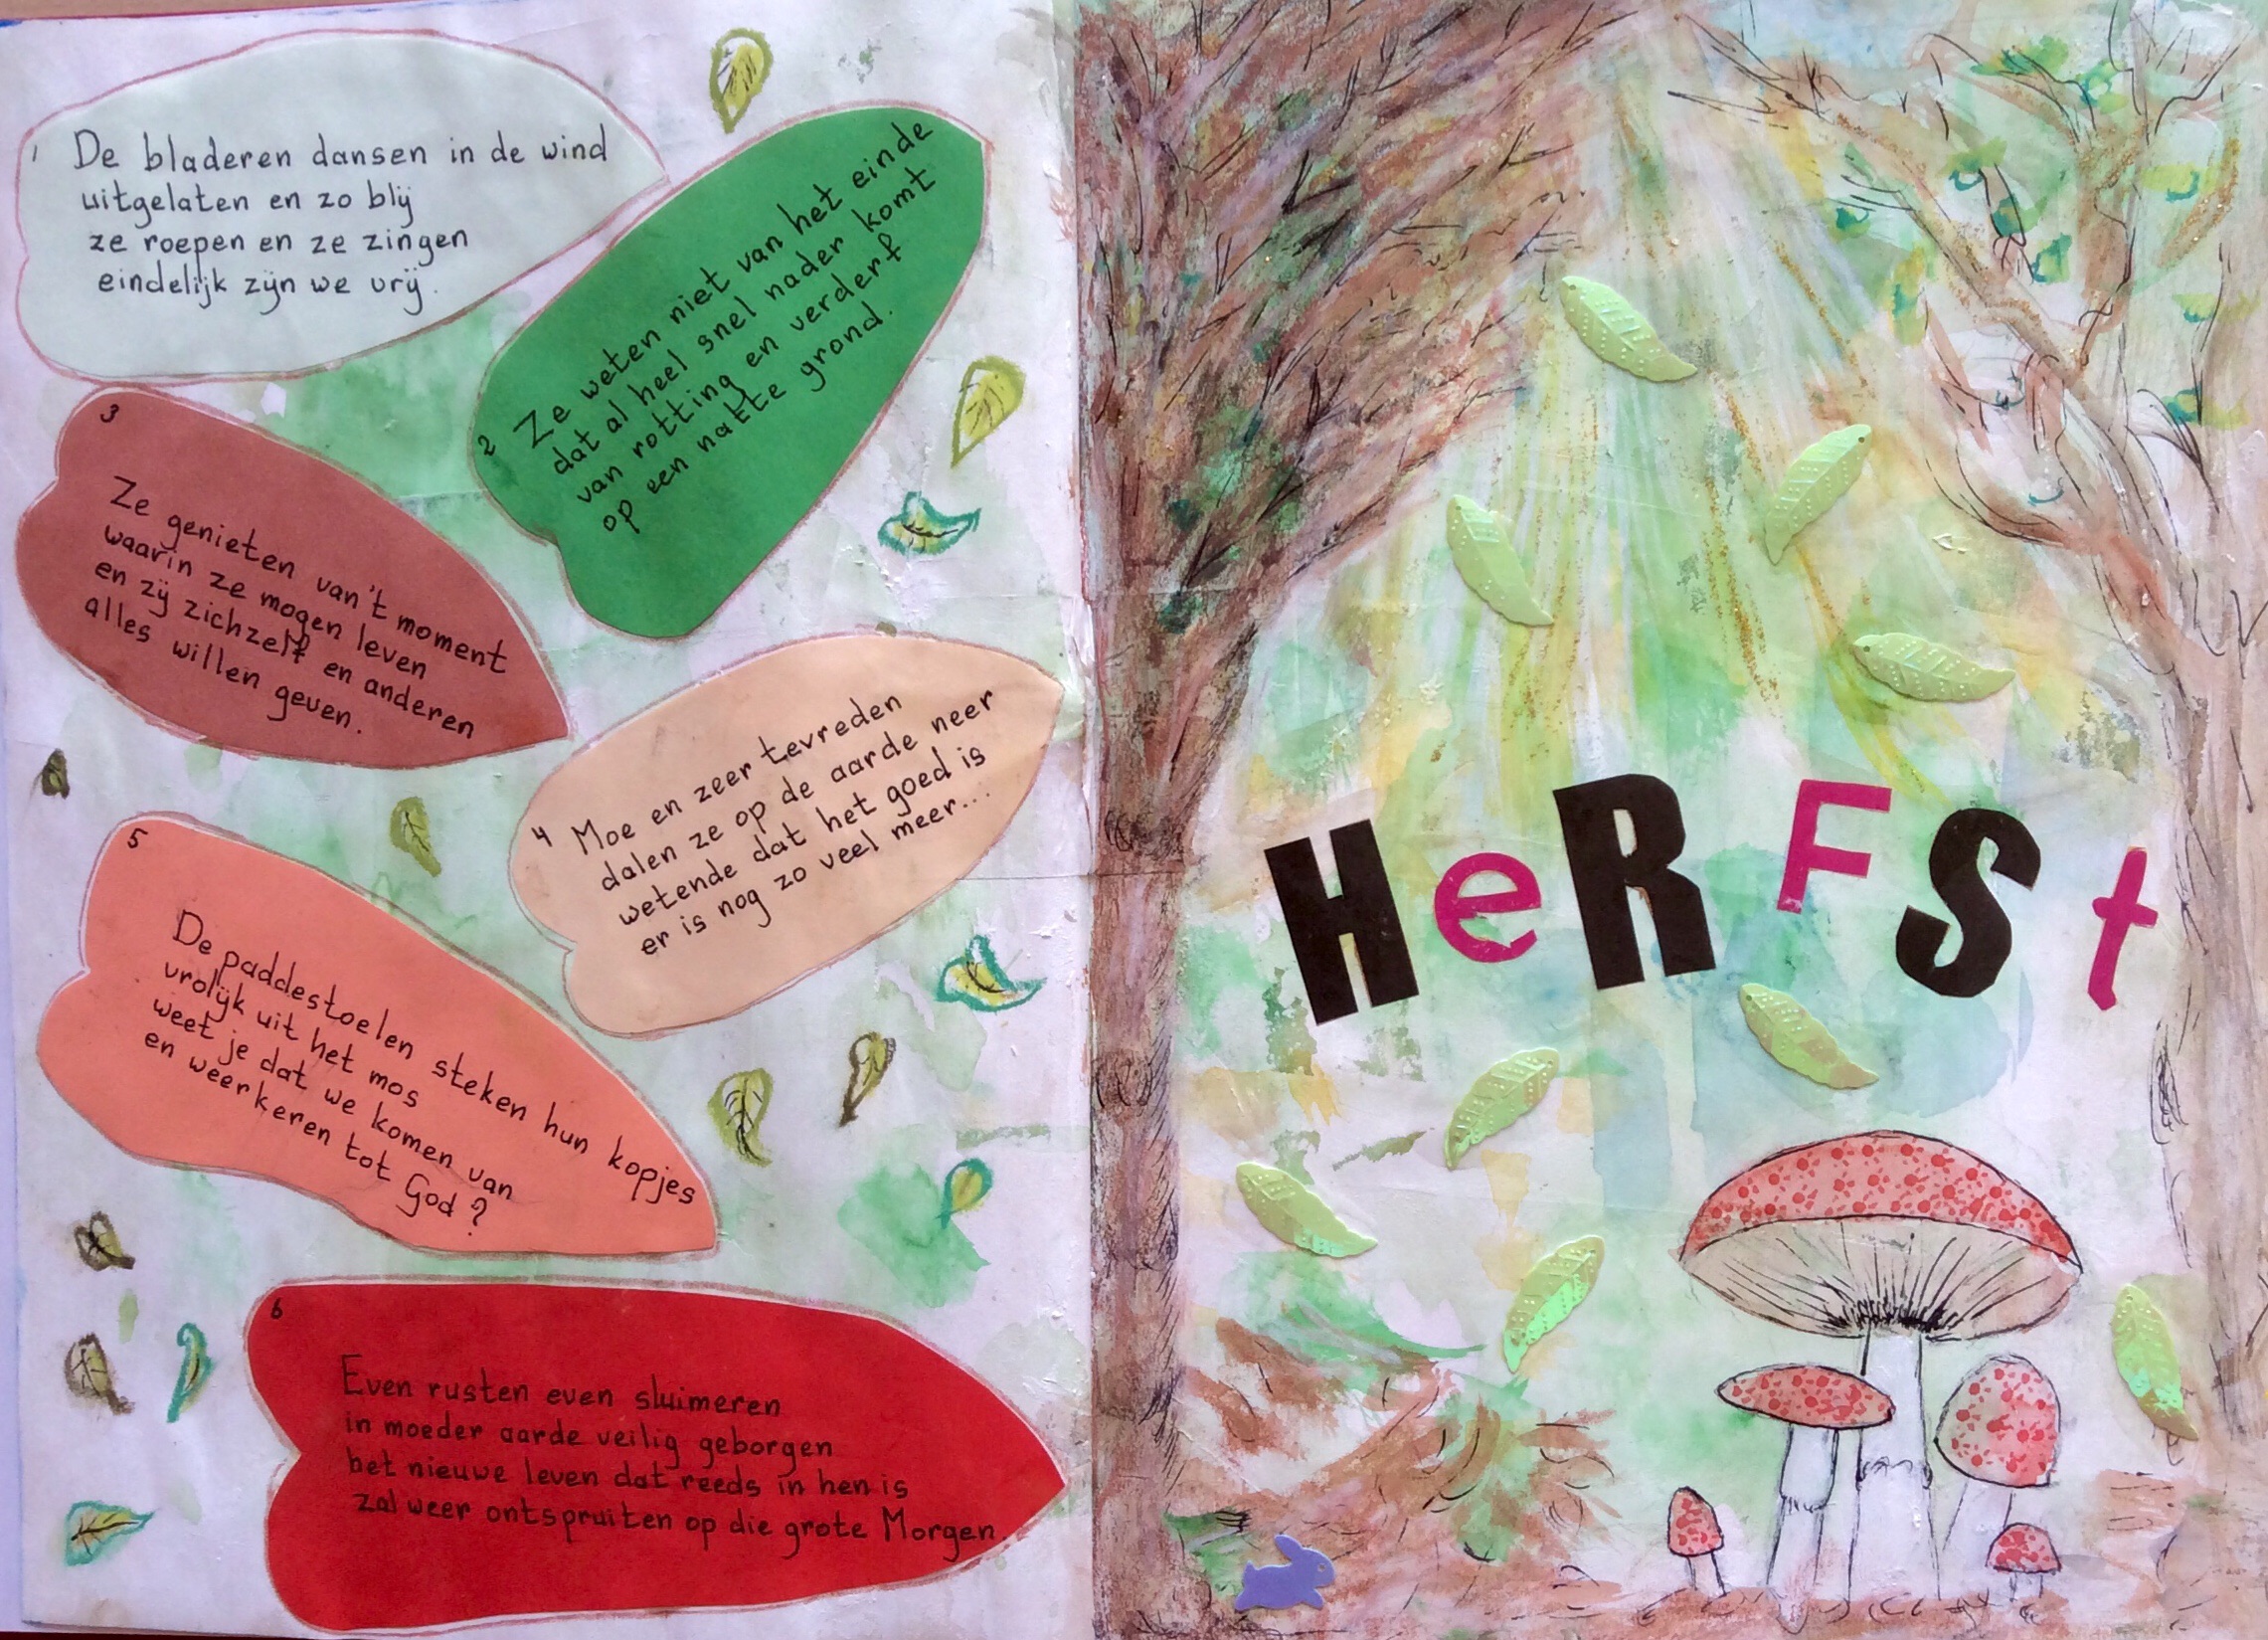 1 De bladeren dansen in de wind
uitgelaten en zo blij
ze roepen en ze zingen
eindelijk zijn we vrij.
2 Ze weten niet van het einde
dat al heel snel nader komt
van rotting en verderf
op een natte grond.
3
Ze genieten van 't moment
waarin ze mogen leven
en zij zichzelf en anderen
alles willen geven.
4 Moe en zeer tevreden
dalen ze op de aarde neer
wetende dat het goed is
er is nog zo veel meer...
5
De paddestoelen steken hun kopjes
vrolijk uit het mos
weet je dat we komen van
en weerkeren tot God?
6
Even rusten even sluimeren
in moeder aarde veilig geborgen
het nieuwe leven dat reeds in hen is
zal weer ontspruiten op die grote Morgen.
HeRFSt